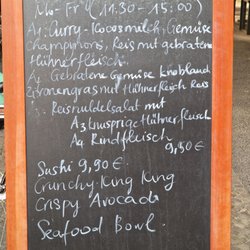 Mo-Fr (11:30-15:00)
A1 Curry-Kokosmilch, Gemüse
Champignons, Reis mit gebratene
Hühnerfleisch.
A2 Gebratene Gemüse Knoblauch
Zitronengras mit Hühnerfleisch Reis
Reisnudelsalat mit
A3 Knusprige Hühnerfleisch
A4 Rindfleisch
9,50 €
Sushi 9,90 €
Crunchy King King
Crispy Avocado
Seafood Bowl